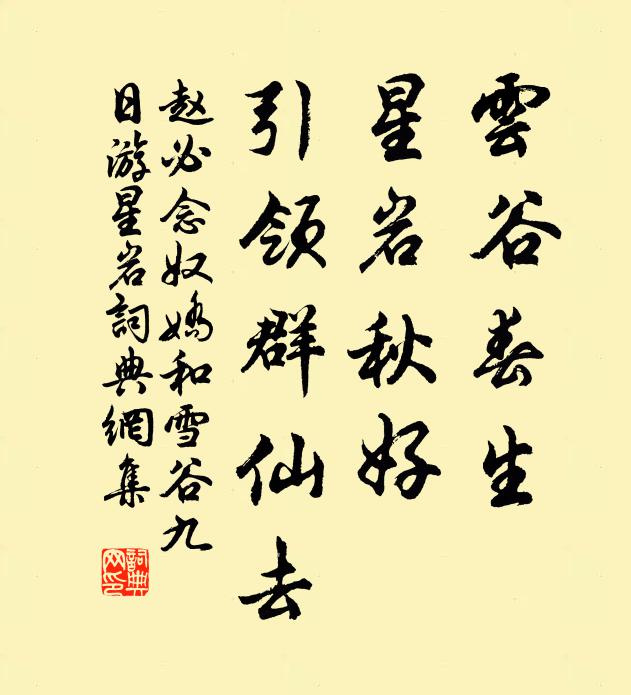 雲谷春生
星岩秋好
引領群仙去
赵必念奴嬌和雪谷九
日游星岩詞典網集
詞典网印